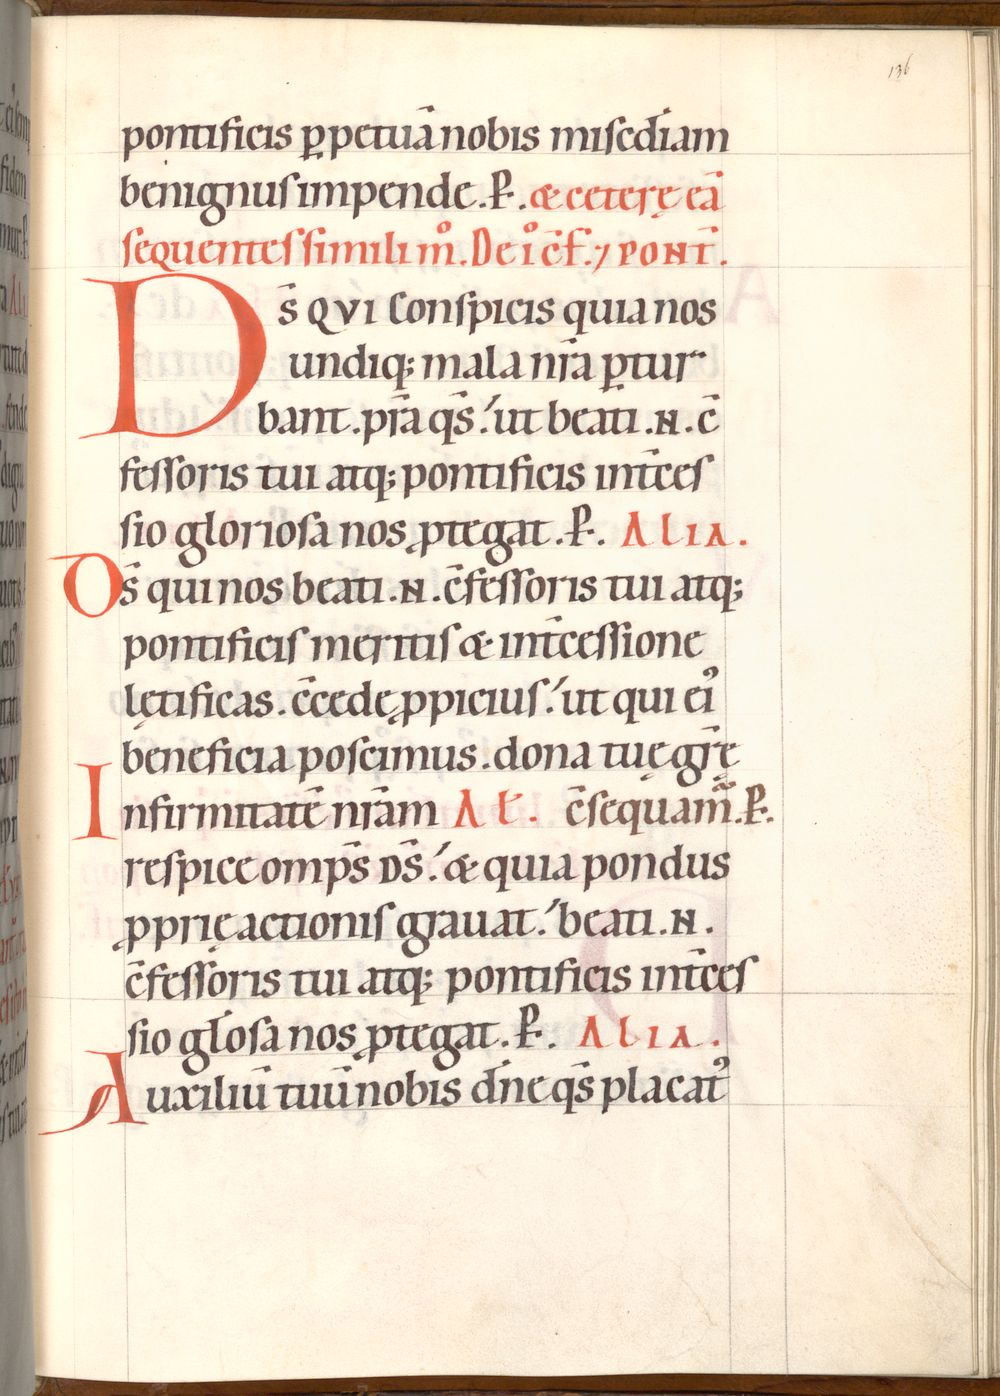 136
pontificis ꝑpetuā nobis misediam
benignus impende. P. & ceterę eā
sequentes simili mo. De io cf. 7 PONT.
Ds QVI Conspicis quia nos
undiq; mala nra ꝑtur
bant. pra qs. ut beati. N. c̄
fessoris tui atq; pontificis intces
sio gloriosa nos ꝓtegat. P. Alia.
Ds qui nos beati. N. c̄fessoris tui atq;
pontificis meritis & intcessione
lętificas. c̄cede ꝓpicius. ut qui ei'
beneficia poscimus. dona tuę grę
Infirmitatē nram At. c̄sequam. P.
respice omps Ds. & quia pondus
ꝓprię actionis grauat. beati. N.
c̄fessoris tui atq; pontificis intces
sio glosa nos ꝓtegat. P. Alia.
Auxiliū tuū nobis dne qs placat'